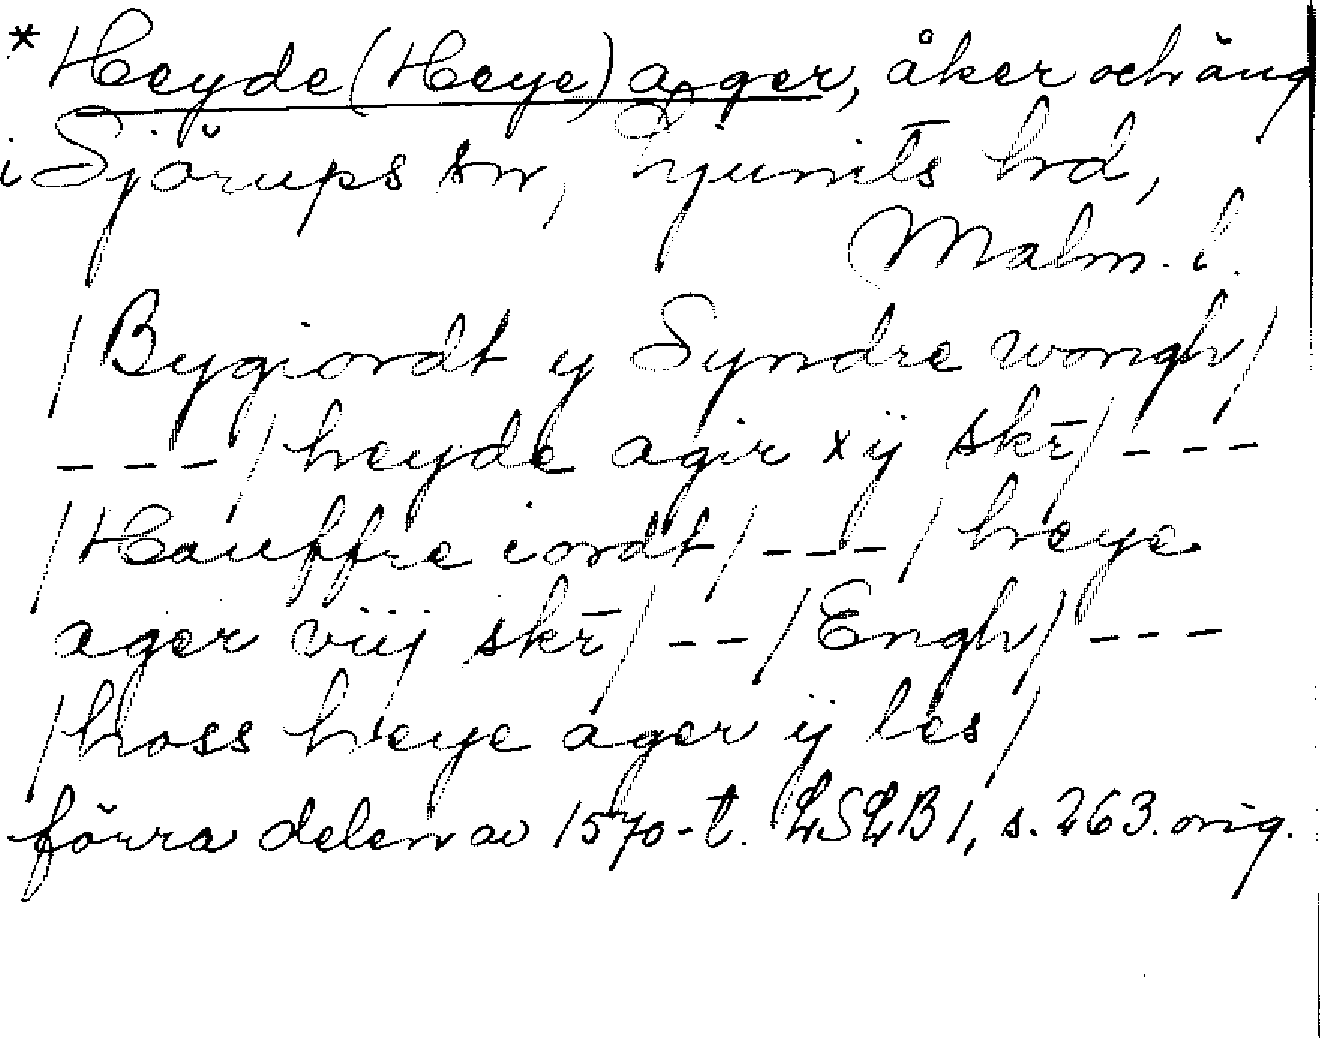 * Heyde (Heye) ager, åker och äng
i Sjörups sn, Ljunits hd,
Malm. l.
/Bygiordt y Syndre wongh/
---/heyde agir xij skr̄/---
/Hauffre iordt/---/heye
ager viij skr̄/--/Engh/---
/hoss heye ager ij les/
förra delen av 1570-t. LSLB 1, s. 263. orig.